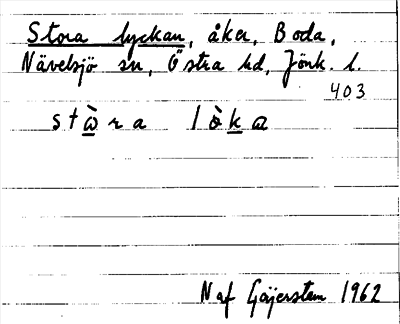 Stora lyckan, åker, Boda,
Nävelsjö sn, Östra hd, Jönk. l.
403
stὼra lòka
Naf Gäijerstam 1962